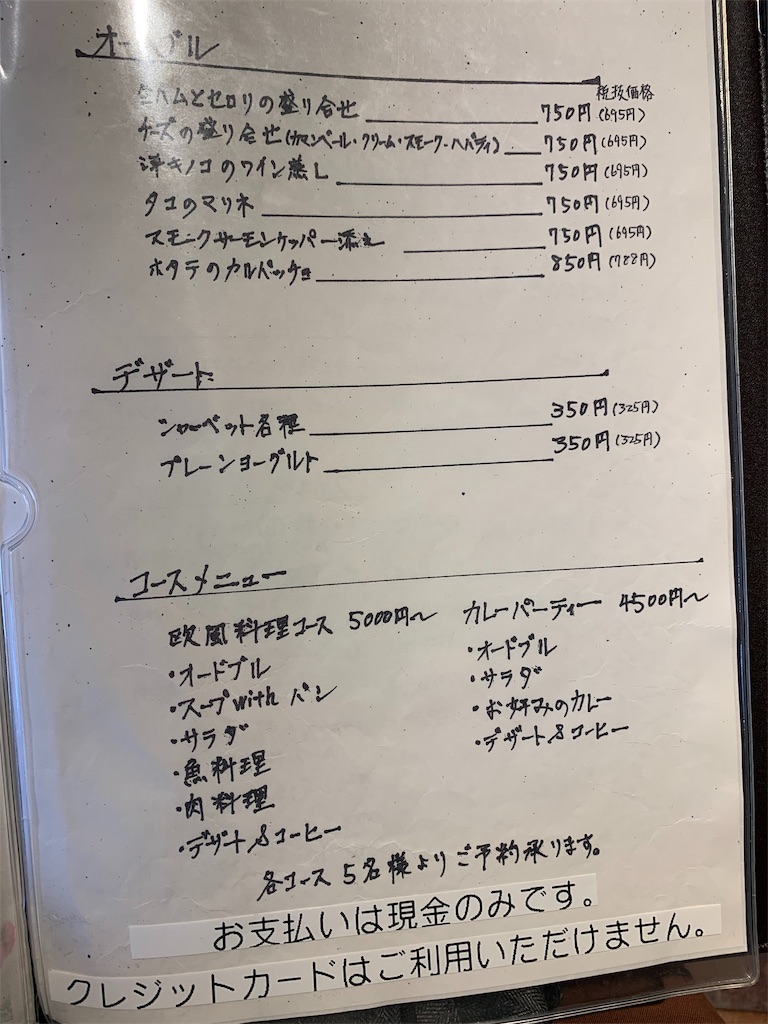 オードブル
税抜価格
生ハムとセロリの盛り合せ 750円(695円)
チーズの盛り合せ(カマンベール・クリーム・スモーク・ハバティ) 750円(695円)
洋キノコのワイン蒸し 750円(695円)
タコのマリネ 750円(695円)
スモークサーモンケッパー添え 750円(695円)
ホタテのカルパッチョ 850円(788円)
デザート
シャーベット各種 350円(325円)
プレーンヨーグルト 350円(325円)
コースメニュー
欧風料理コース 5000円〜
・オードブル
・スープwithパン
・サラダ
・魚料理
・肉料理
・デザート&コーヒー
カレーパーティー 4500円〜
・オードブル
・サラダ
・お好みのカレー
・デザート&コーヒー
各コース5名様よりご予約承ります。
お支払いは現金のみです。
クレジットカードはご利用いただけません。